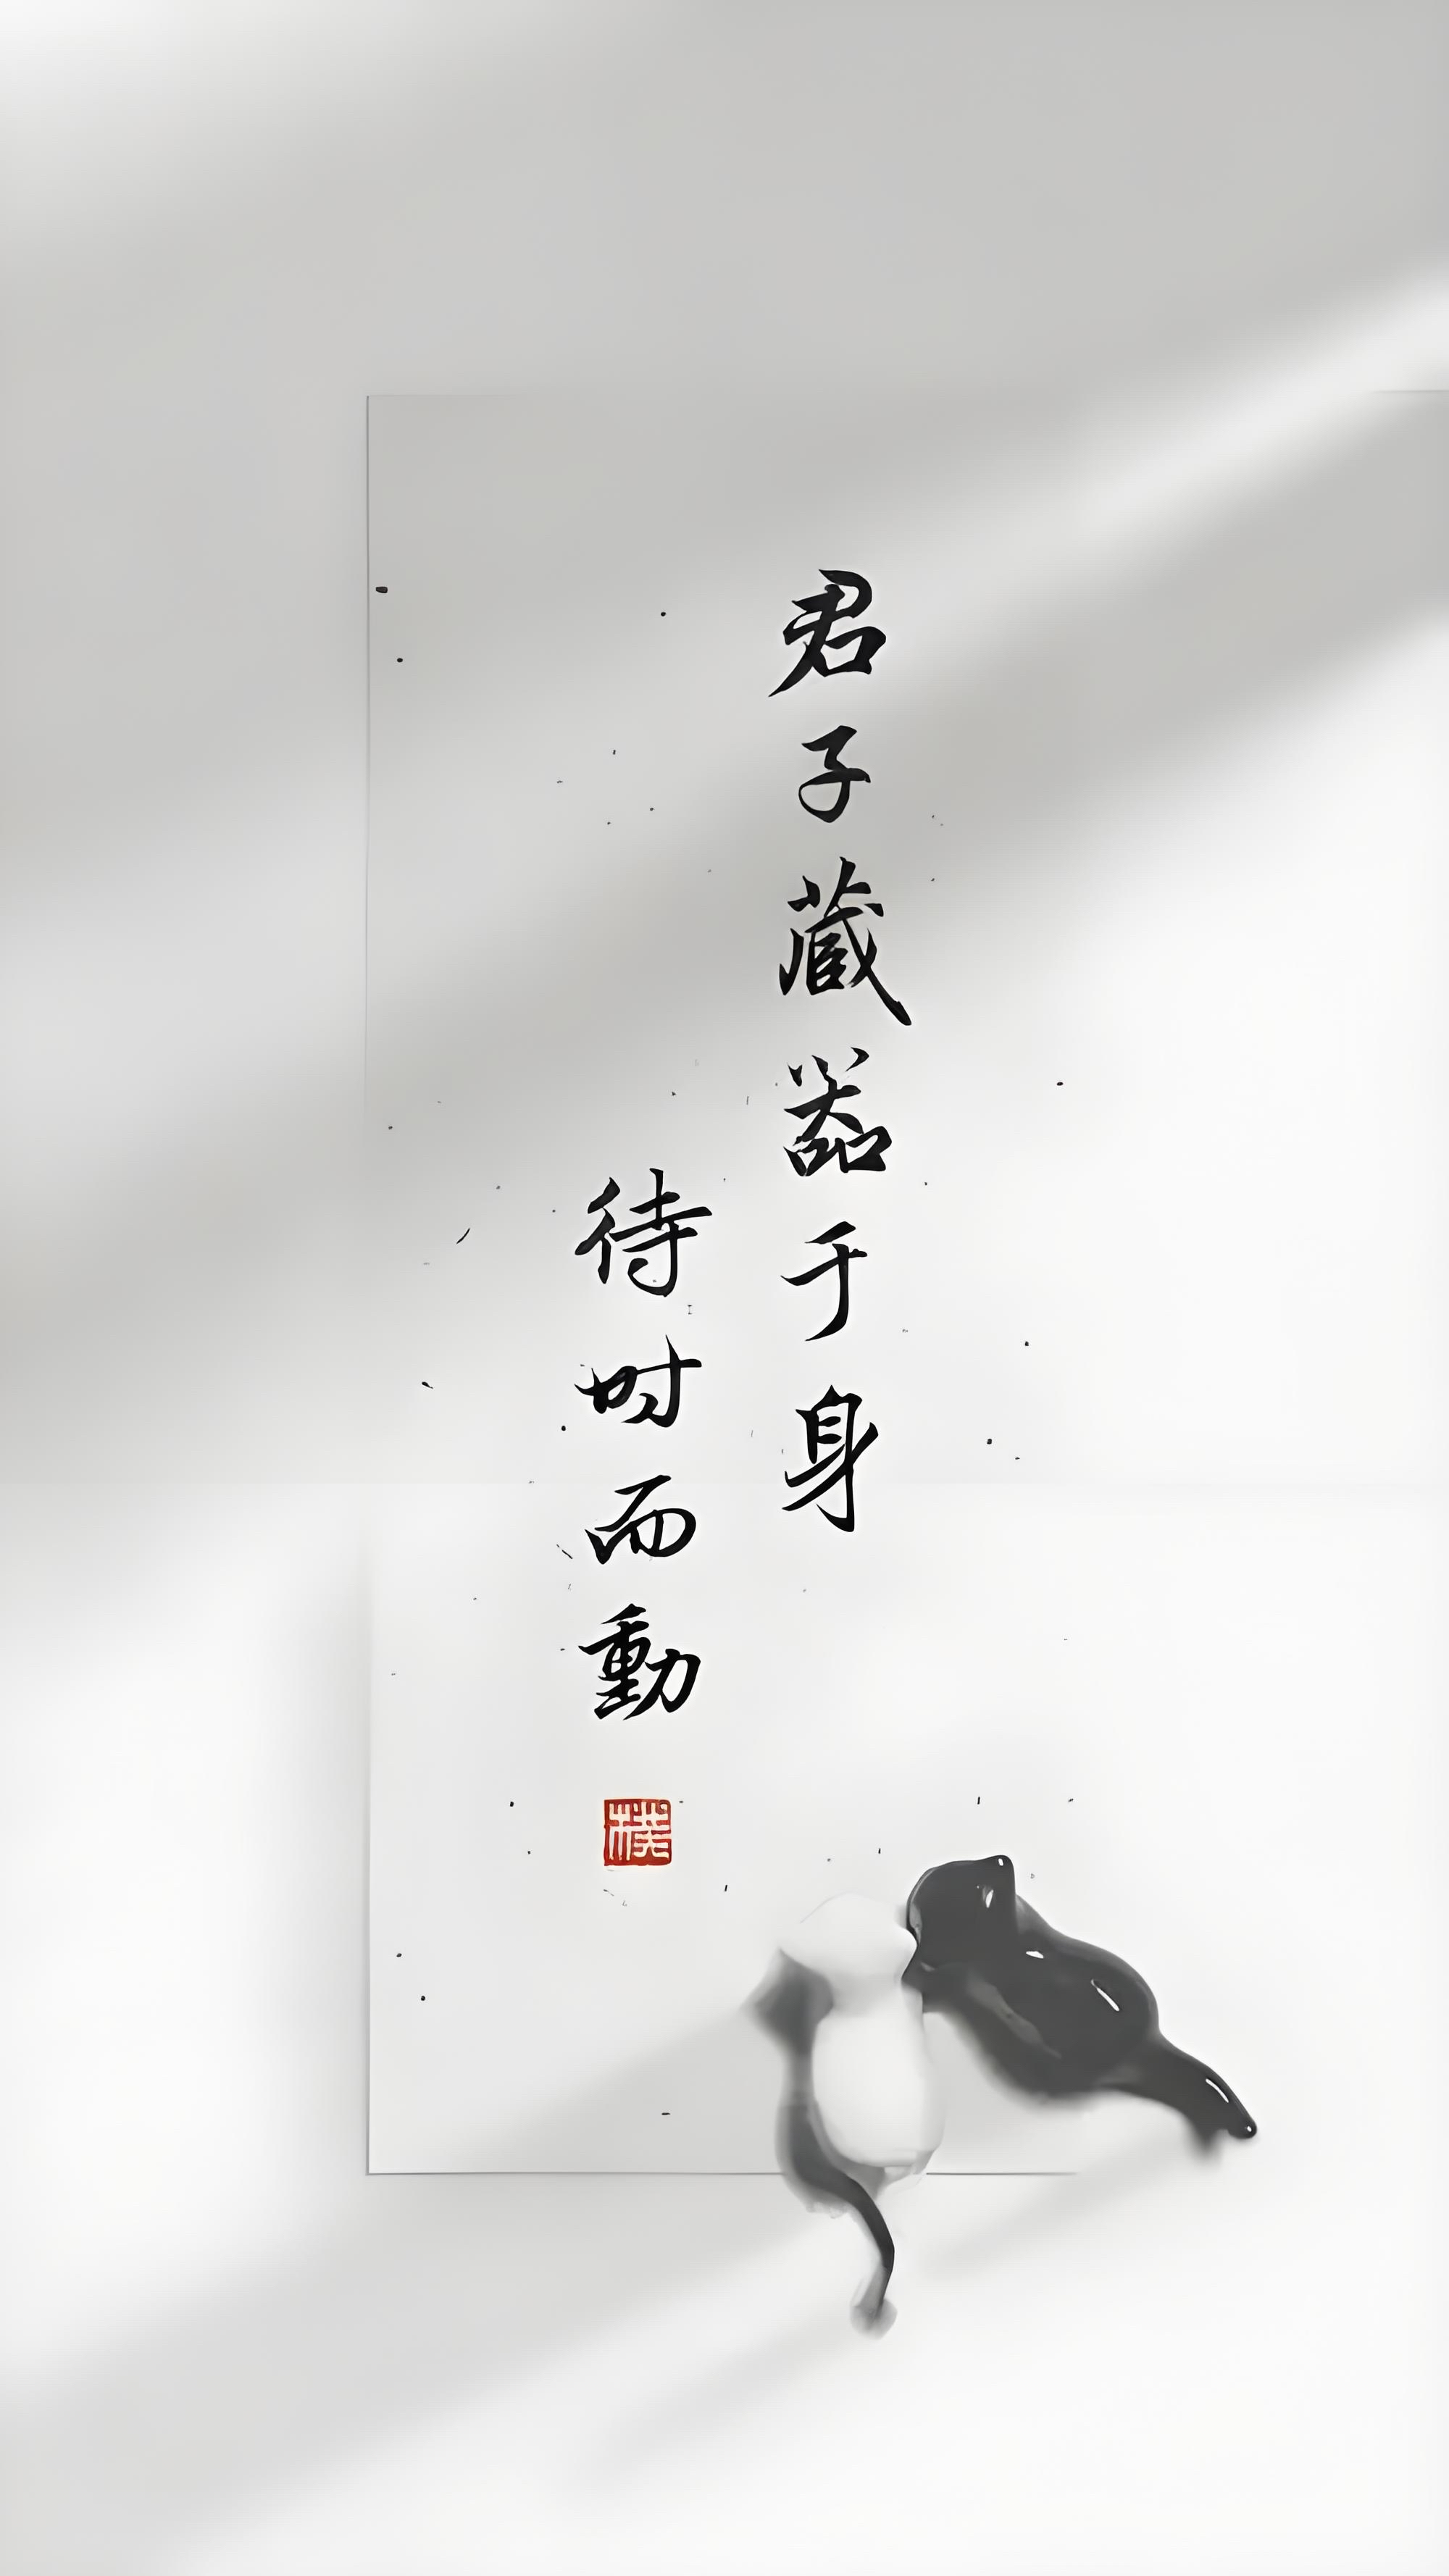 君子藏器于身
待时而動
樸